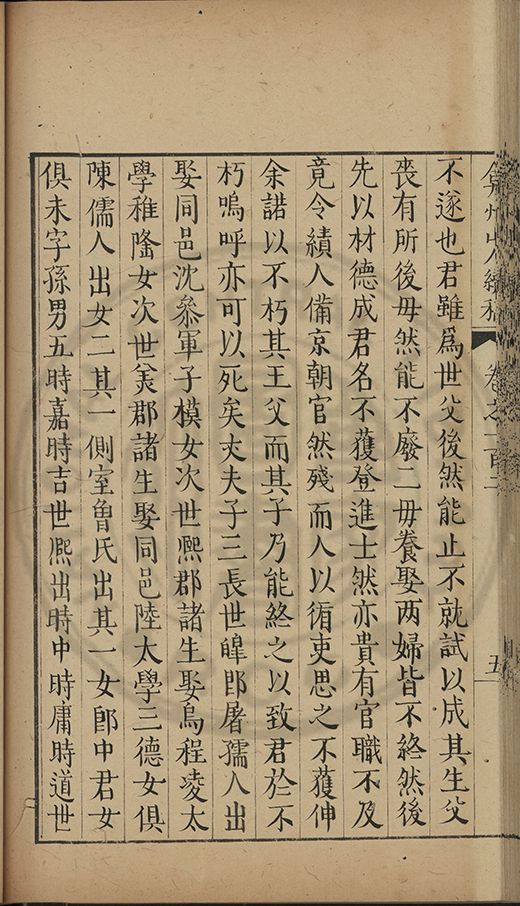 弇州山人續稿 卷之一百二 五
不遂也君雖爲世父後然能止不就試以成其生父
喪有所後母然能不廢二母養娶两婦皆不終然後
先以材德成君名不獲登進士然亦貴有官職不及
竟令績人備京朝官然殘而人以循吏思之不獲伸
余諾以不朽其王父而其子乃能終之以致君於不
朽嗚呼亦可以死矣丈夫子三長世皥即屠孺人出
娶同邑沈叅軍子模女次世熈郡諸生娶烏程凌太
學稚隆女次世 郡諸生娶同邑陸太學三德女俱
陳儒人出女二其一側室魯氏出其一女郎中君女
俱未字孫男五時嘉時吉世熈出時中時庸時道世